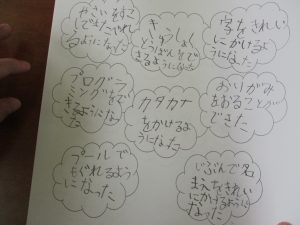 やさいをすこし
でもたべれ
るようになった
きゅうしょく
とうばんをで
きるようになった
字をきれい
にかけるよ
うになった
プログラ
ミングをで
きるようになっ
た
カタカナ
をかけるよ
うになった
おりがみ
をおることが
できた
プールで
もぐれるよう
になった
じぶんで名
まえをきれい
にかけるように
なった